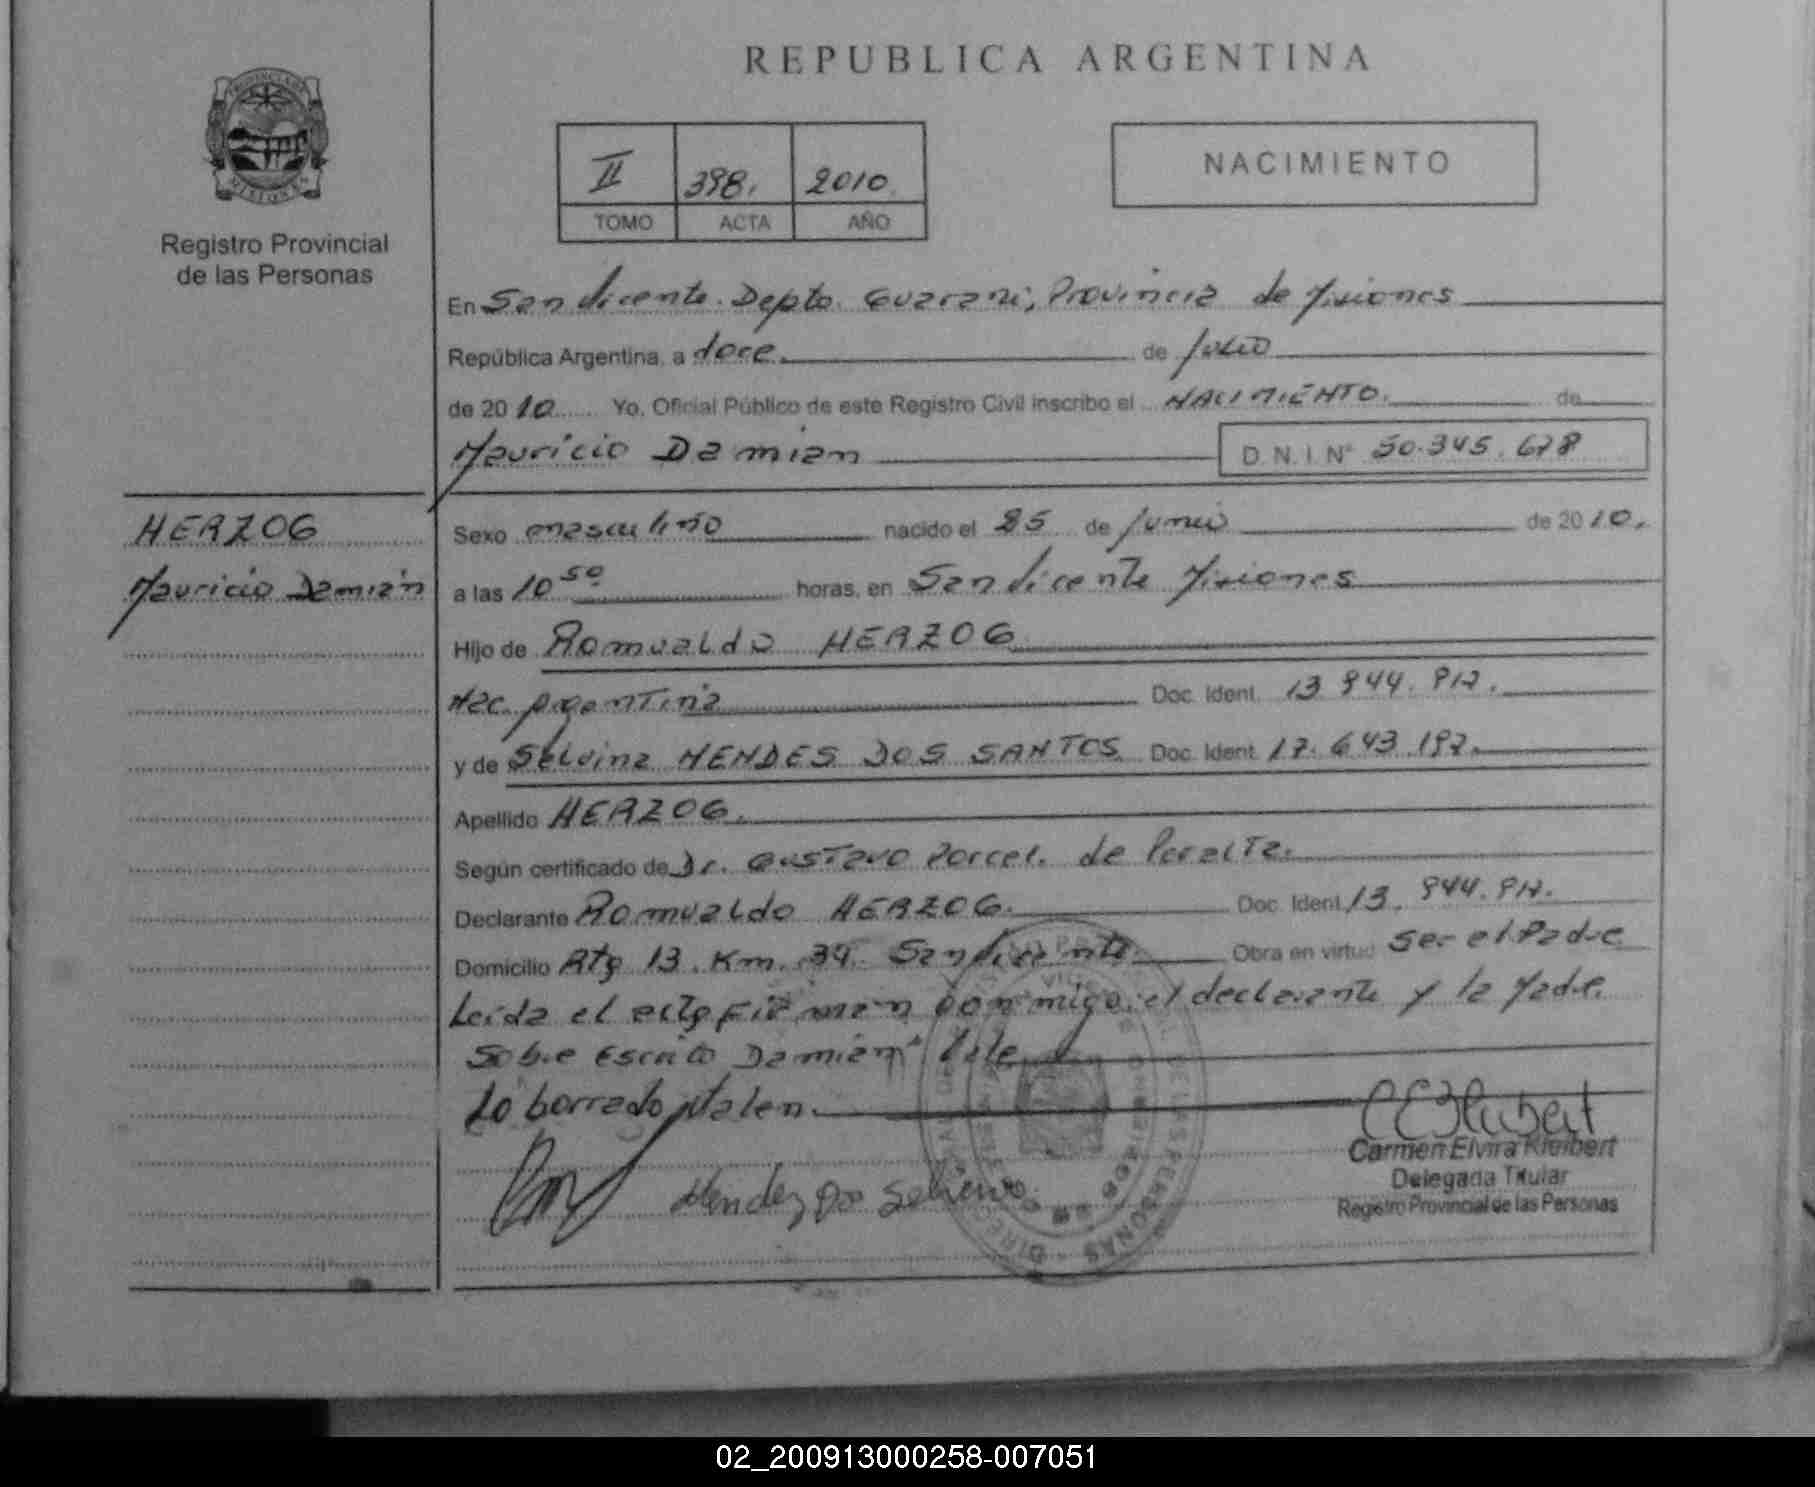 REPUBLICA ARGENTINA
PROVINCIA DE
MISIONES
Registro Provincial
de las Personas
II 398. 2010.
TOMO ACTA AÑO
NACIMIENTO
En San Vicente. Depto. Guarani, Provincia de Misiones
República Argentina, a doce. de Julio
de 2010 Yo, Oficial Público de este Registro Civil inscribo el NACIMIENTO. de
Mauricio Damian D.N.I. Nº 50.345.678
HERZOG
Mauricio Damián
Sexo masculino nacido el 25 de Junio de 2010.
a las 10 50 horas, en San Vicente Misiones
Hijo de Romualdo HERZOG
Nac. Argentina Doc. Ident. 13 944. 912.
y de Selvina MENDES DOS SANTOS Doc. Ident. 17. 643 197.
Apellido HERZOG.
Según certificado de Dr. Gustavo Porcel. de Peralta.
Declarante Romualdo HERZOG. Doc. Ident. 13. 944. 912.
Domicilio Rta 13. Km. 34. San Vicente. Obra en virtud Ser el Padre
Leída el acta Firman Conmigo. el declarante y la Madre.
Sobre Escrito Damián Vale.
Lo borrado Valen.
Mendez Do
Carmen Elvira Kleibert
Delegada Titular
Registro Provincial de las Personas
DE LAS PERSONAS
02_200913000258-007051